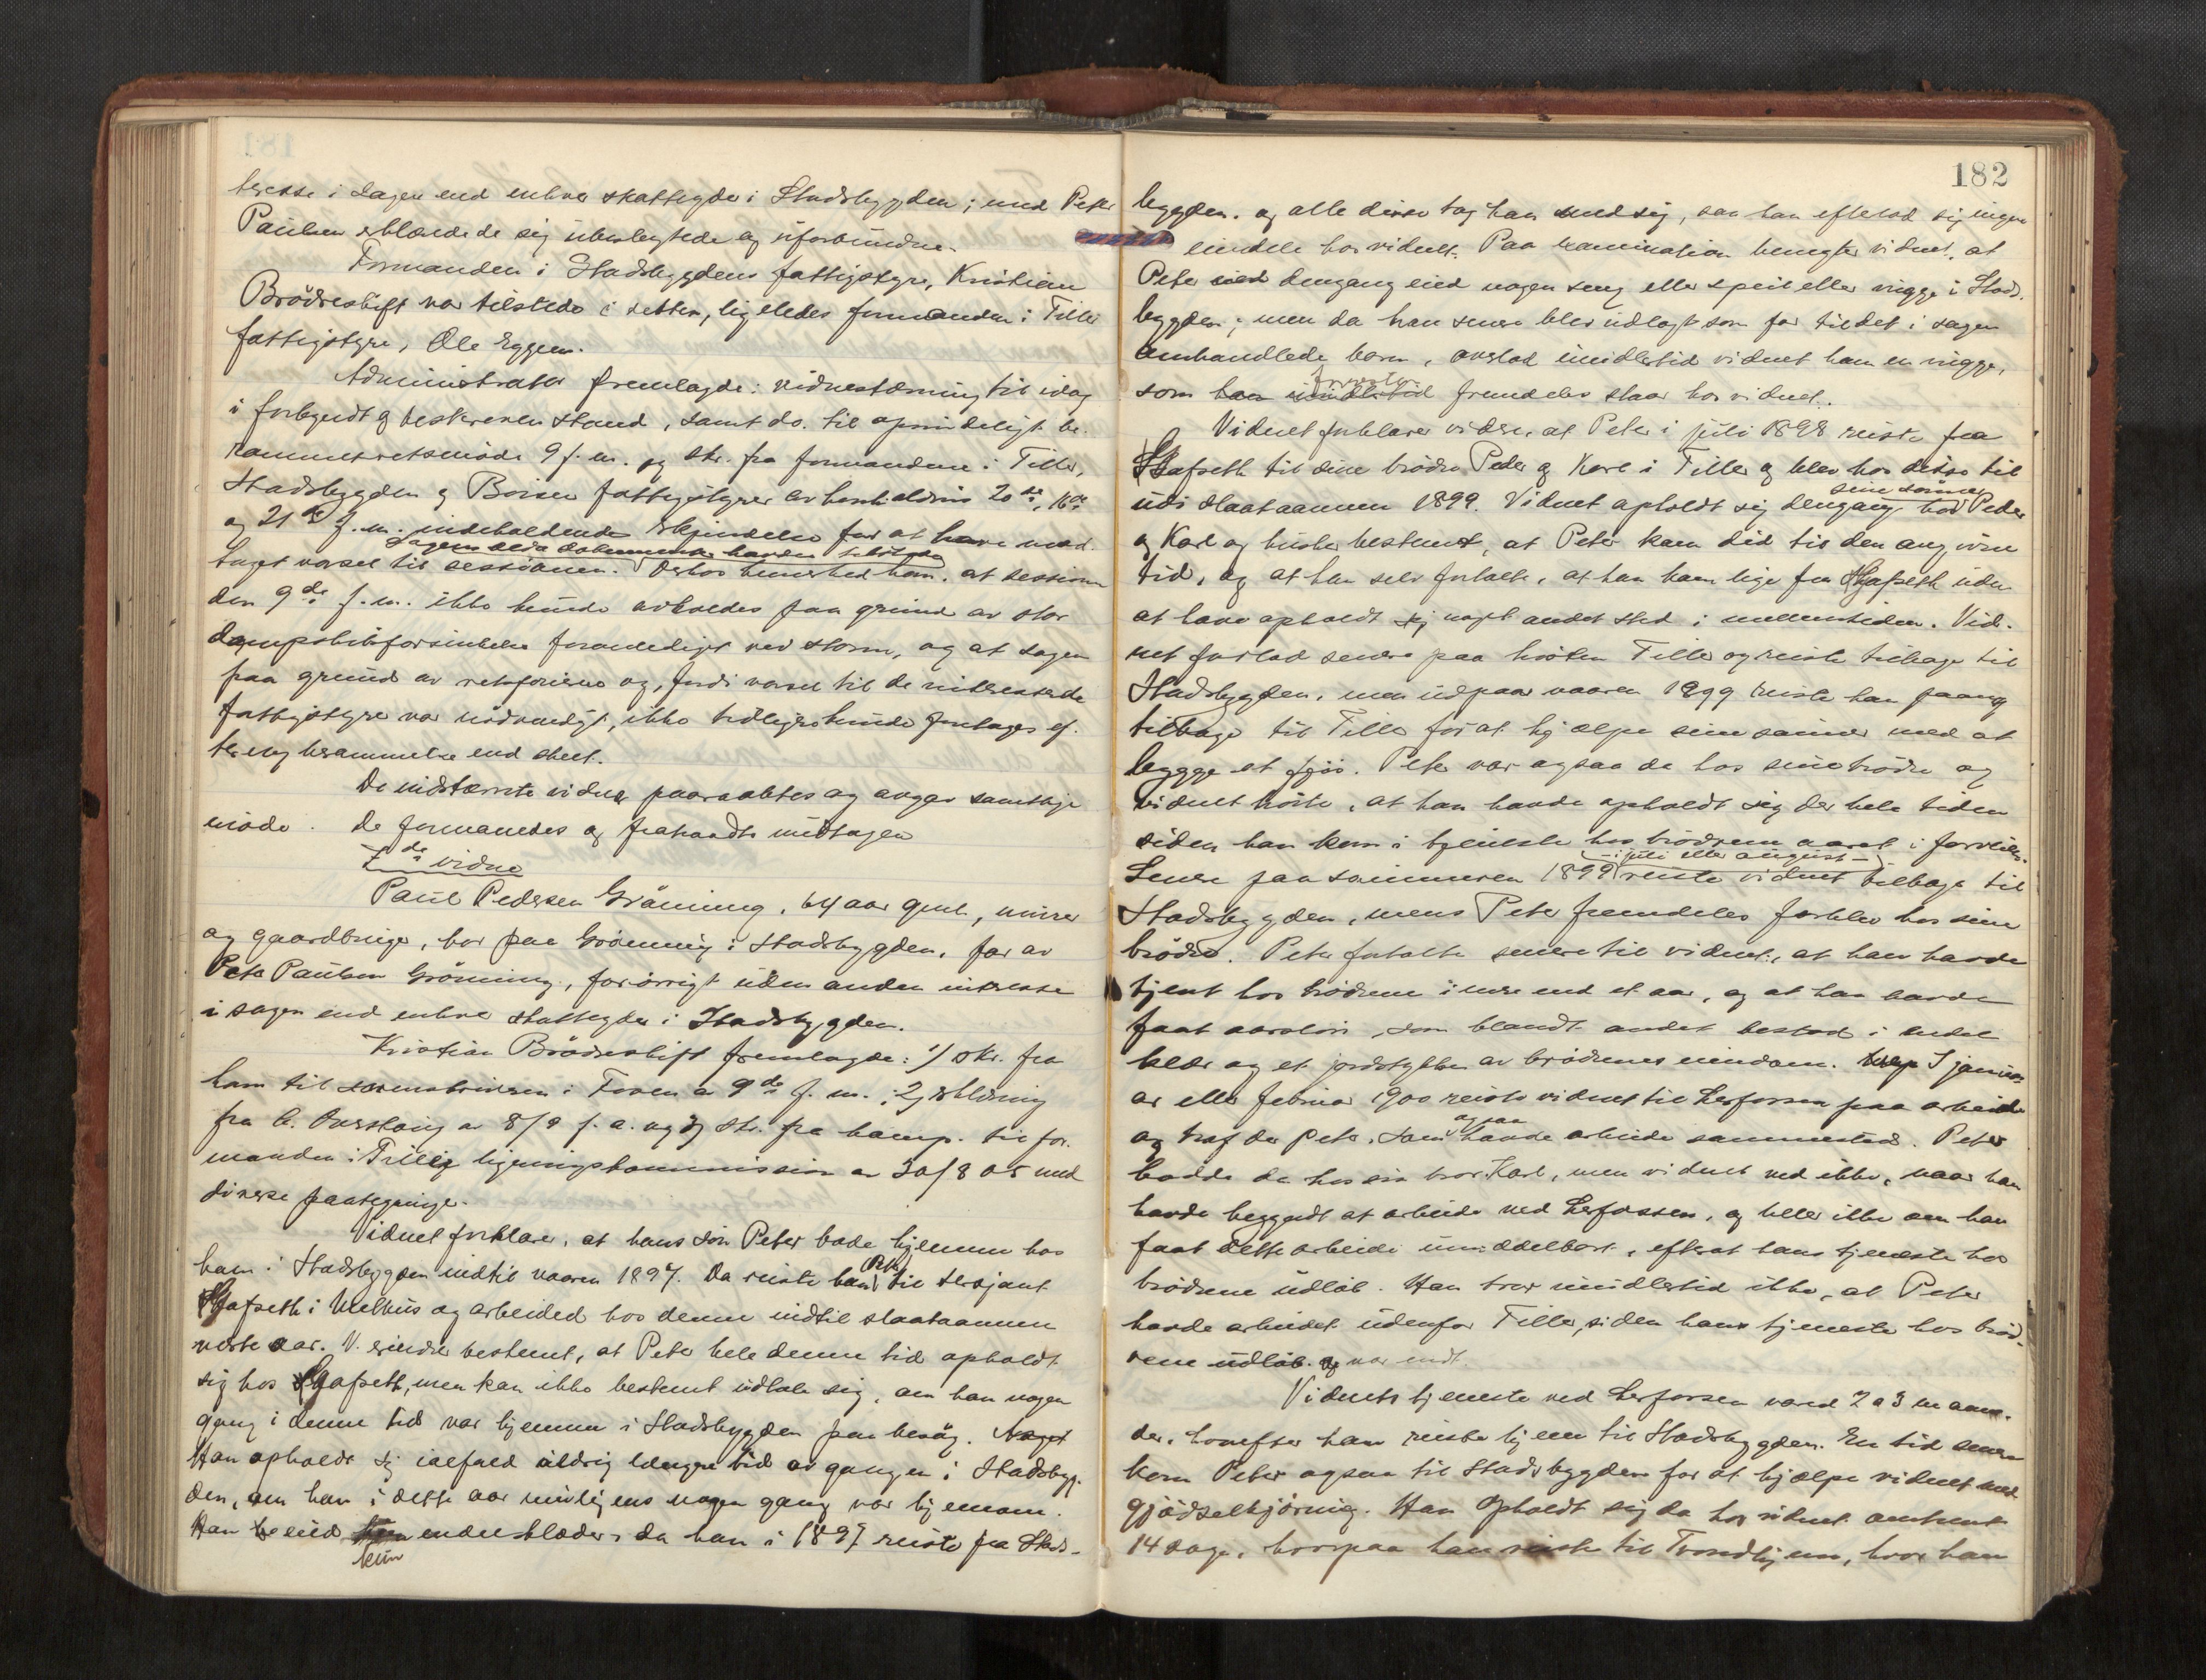 teresse i Sagen end enhver skatteyder i Stadsbygden; med Peter
Paulsen erklærede de sig ubeslegtede og uforbundne.
Formanden i Stadsbygdens fattigstyre, Kristian
Brödreskift var tilstede i retten, ligeledes formanden i Tiller
fattigstyre, Ole Eggen.
Administrator fremlagde: vidnestævning til idag
i forkyndt og beskreven stand, samt do. til oprindeligt be-
rammet retsmöde 9 f. m. og skr. fra formændene i Tiller,
Stadsbygden og Börsen fattigstyrer av henholdsvis 20de, 16de
og 21de f. m. indeholdende erkjendelse for at have mod-
Sagens del dokumenter havdes tilstede
taget varsel til sessionen. Derhos bemerked han, at sessionen
den 9de f. m. ikke kunde avholdes paa grund av stor
dampskibsforsinkelse foranlediget ved storm, og at sagen
paa grund av retsferierne og, fordi varsel til de interesserede
fattigstyrer var nödvendigt, ikke tidligere kunde foretages ef-
ter ny berammelse end skeet.
De indstævnte vidner paaraabtes og angav samtlige
möde. De formanedes og frataadte midtagen
7de vidne
Paul Pedersen Grönning, 64 aar gml, murer
og gaardbruger, bor paa Grönning i Stadsbygden, far av
Peter Paulsen Grönning, forövrigt uden anden interesse
i sagen end enhver skatteyder i Stadsbygden.
Kristian Brödreskift fremlagde: 1) skr. fra
ham til sorenskriveren i Fosen av 9de f. m.; 2) erklæring
fra av 8/9 f. a. og 3) skr. fra komp. til for-
manden i ligningskommission av 30/8 05 med
diverse paategninger.
Vidnet forklarer, at hans sön Peter bode hjemme hos
ham i Stadsbygden indtil vaaren 1897. Da reiste han Peter til sersjant
Skjafseth i Melhus og arbeided hos denne indtil slaataannen
neste aar. V. erindrer bestemt, at Peter hele denne tid opholdt
sig hos Skjafseth, men kan ikke bestemt udtale sig, om han nogen
gang i denne tid var hjemme i Stadsbygden paa besög. Noget
Han opholdt sig ialfald aldrig længere tid ad gangen i Stadsbyg-
den, om han i dette aar muligens nogen gang var hjemom.
Han eied kun endel klæder, da han i 1897 reiste fra Stads-
182
bygden, og alle disse tog han med sig, saa han efterlod sig ingen
eiendele hos vidnet. Paa examination benegter vidnet, at
Peter eied dengang eied nogen seng eller speil eller vugge i Stads-
bygden; men da han senere blev udlagt som far til det i sagen
omhandlede barn, avstod imidlertid vidnet ham en vugge,
som han imidlertid fremdeles staar hos vidnet.
Vidnet forklarer videre, at Peter i juli 1898 reiste fra
Skjafseth til sine brödre Peder og Karl i Tiller og blev hos disse til
udi slaataannen 1899. Vidnet opholdt sig dengang hos sine sönner Peder
og Karl og husker bestemt, at Peter kom did til den angivne
tid, og at han selv fortalte, at han kom lige fra Skjafseth uden
at have opholdt sig noget andet sted i mellemtiden. Vid-
net forlod senere paa hösten Tiller og reiste tilbage til
Stadsbygden, men udpaa vaaren 1899 reiste han paany
tilbage til Tiller for at hjælpe sine sönner med at
bygge et fjös. Peter var ogsaa da hos sine brödre og
vidnet hörte, at han havde opholdt sig der hele tiden
siden han kom i tjeneste hos brödrene aaret i forveien.
Senere paa sommeren 1899 – i juli eller august – reiste vidnet tilbage til
Stadsbygden, mens Peter fremdeles forblev hos sine
brödre. Peter fortalte senere til vidnet, at han havde
tjent hos brödrene i mere end et aar, og at han havde
faat aarslön, som blandt andet bestod i endel
klær og et jordstykke av brödrenes eiendom. I janu-
ar eller februar 1900 reiste vidnet til Lerfossen paa arbeide
og traf der Peter, som ogsaa havde arbeide sammesteds. Peter
bodde da hos sin bror Karl, men vidnet ved ikke, naar han
havde begyndt at arbeide ved Lerfossen, og heller ikke om han
faat dette arbeide umiddelbart, efterat hans tjeneste hos
brödrene udlöb. Han tror imidlertid ikke, at Peter
havde arbeidet udenfor Tiller, siden hans tjeneste hos bröd-
rene udlöb. og var endt.
Vidnets tjeneste ved Lerfossen vared 2 a 3 maane-
der, hvorefter han reiste hjem til Stadsbygden. En tid senere
kom Peter ogsaa til Stadsbygden for at hjælpe vidnet med
gjödselkjöring. Han opholdt sig da hos vidnet omtrent
14 dage, hvorpaa han reiste til Trondhjem, hvor han